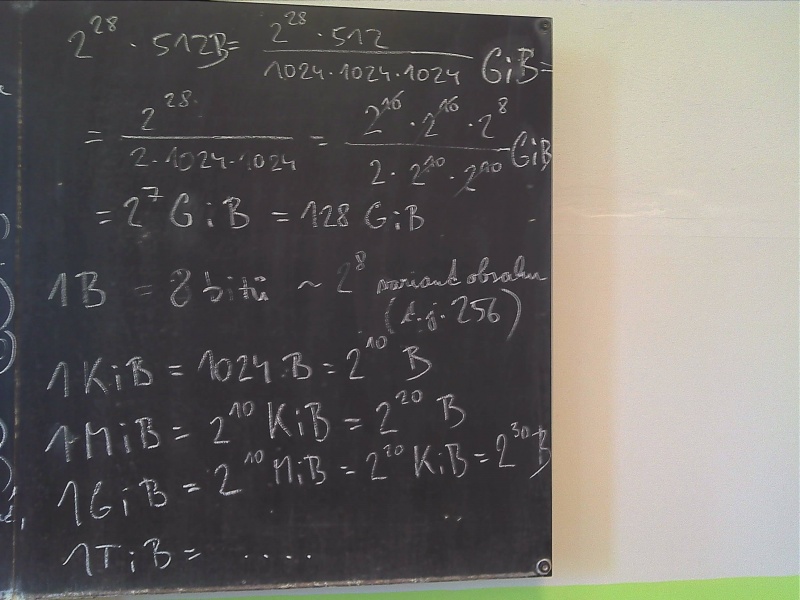 2^28 · 512B = 2^28 · 512 / 1024 · 1024 · 1024 GiB =
= 2^28 / 2 · 1024 · 1024 = 2^10 · 2^10 · 2^8 / 2 · 2^10 · 2^10 GiB
= 2^7 GiB = 128 GiB
1B = 8 bitů ~ 2^8 variant obsahu
(t.j. 256)
1KiB = 1024 B = 2^10 B
1MiB = 2^10 KiB = 2^20 B
1GiB = 2^10 MiB = 2^20 KiB = 2^30 B
1TiB = ....